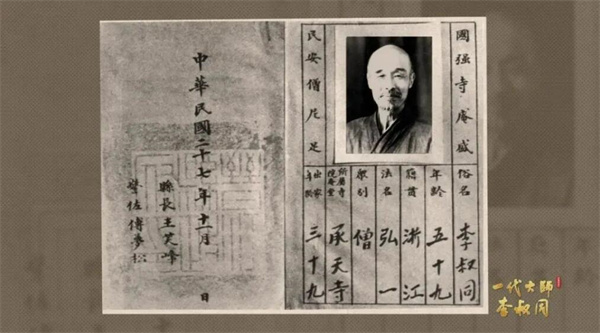 國强寺庵盛
俗名 李叔同
年齡 五十九
籍貫 浙江
法名 弘一
眾別 僧
所屬寺院堂 承天寺
出家年齡 三十九
民安僧尼足
中華民國二十七年十一月 日
縣長王笑峰
警佐傅夢松
一代大师
李叔同